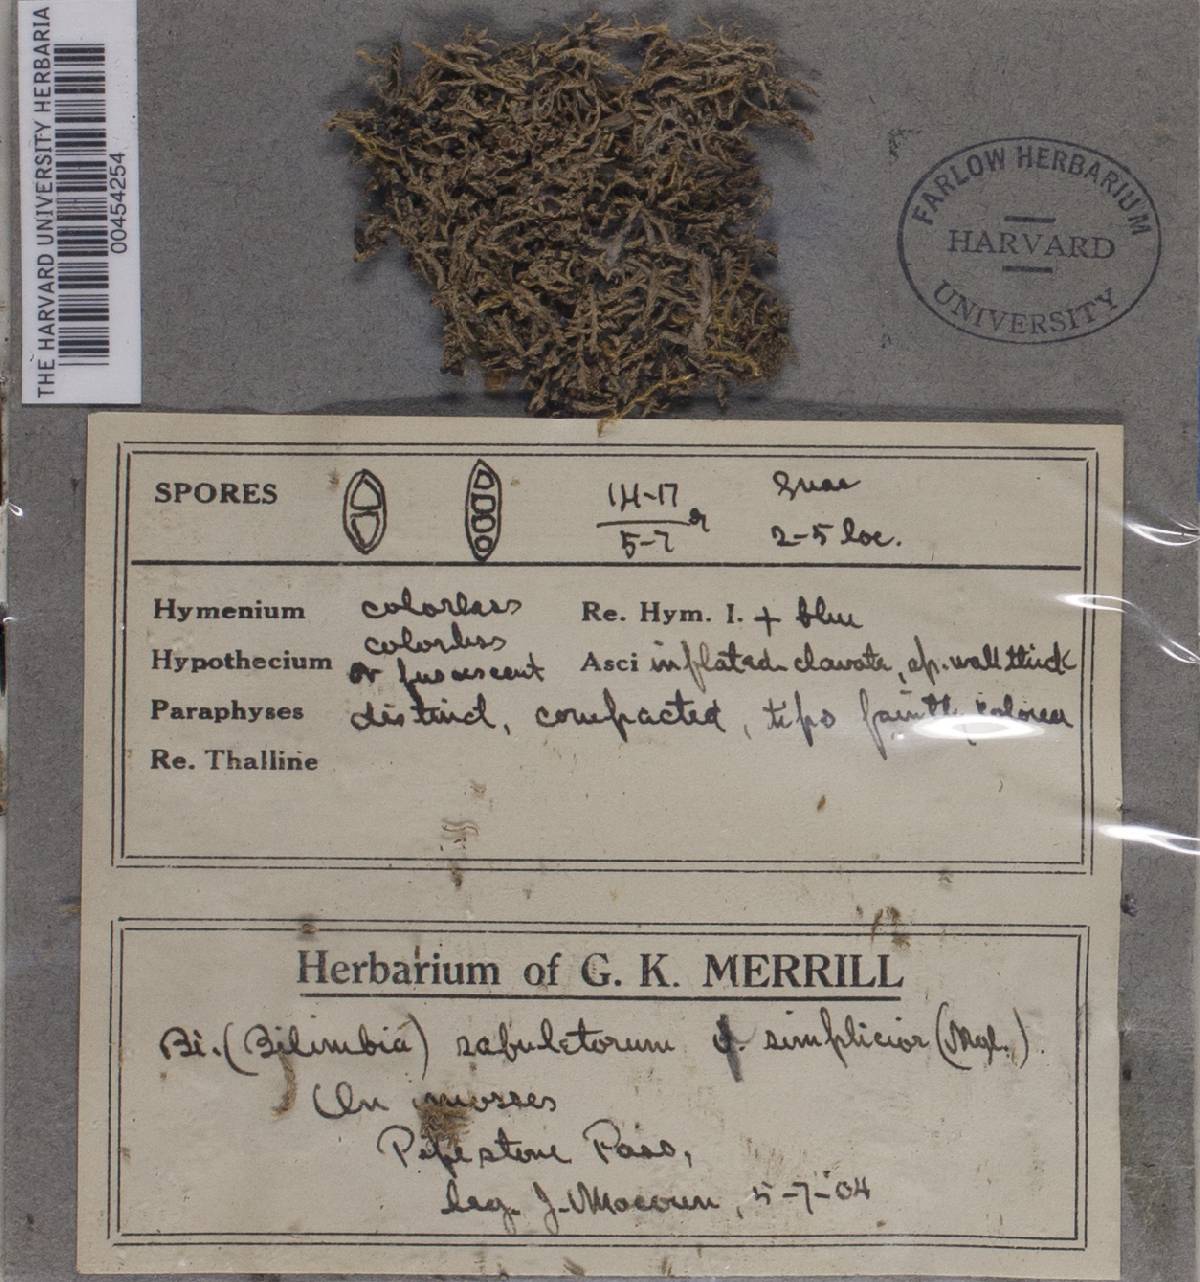 THE HARVARD UNIVERSITY HERBARIA
00454254
FARLOW HERBARIUM
HARVARD
UNIVERSITY
SPORES
14-17
5-7
2-5 loc.
Hymenium colorless Re. Hym. I. + blue
colorless
Hypothecium or fuscescent Asci inflated clavate, sp. wall thick
Paraphyses distinct, compacted, tips faintly colored
Re. Thalline
Herbarium of G. K. MERRILL
Bi. (Bilimbia) sabuletorum f. simplicior (Nyl.).
On mosses
Pipestone Pass,
Leg. J. Macoun, 5-7-04